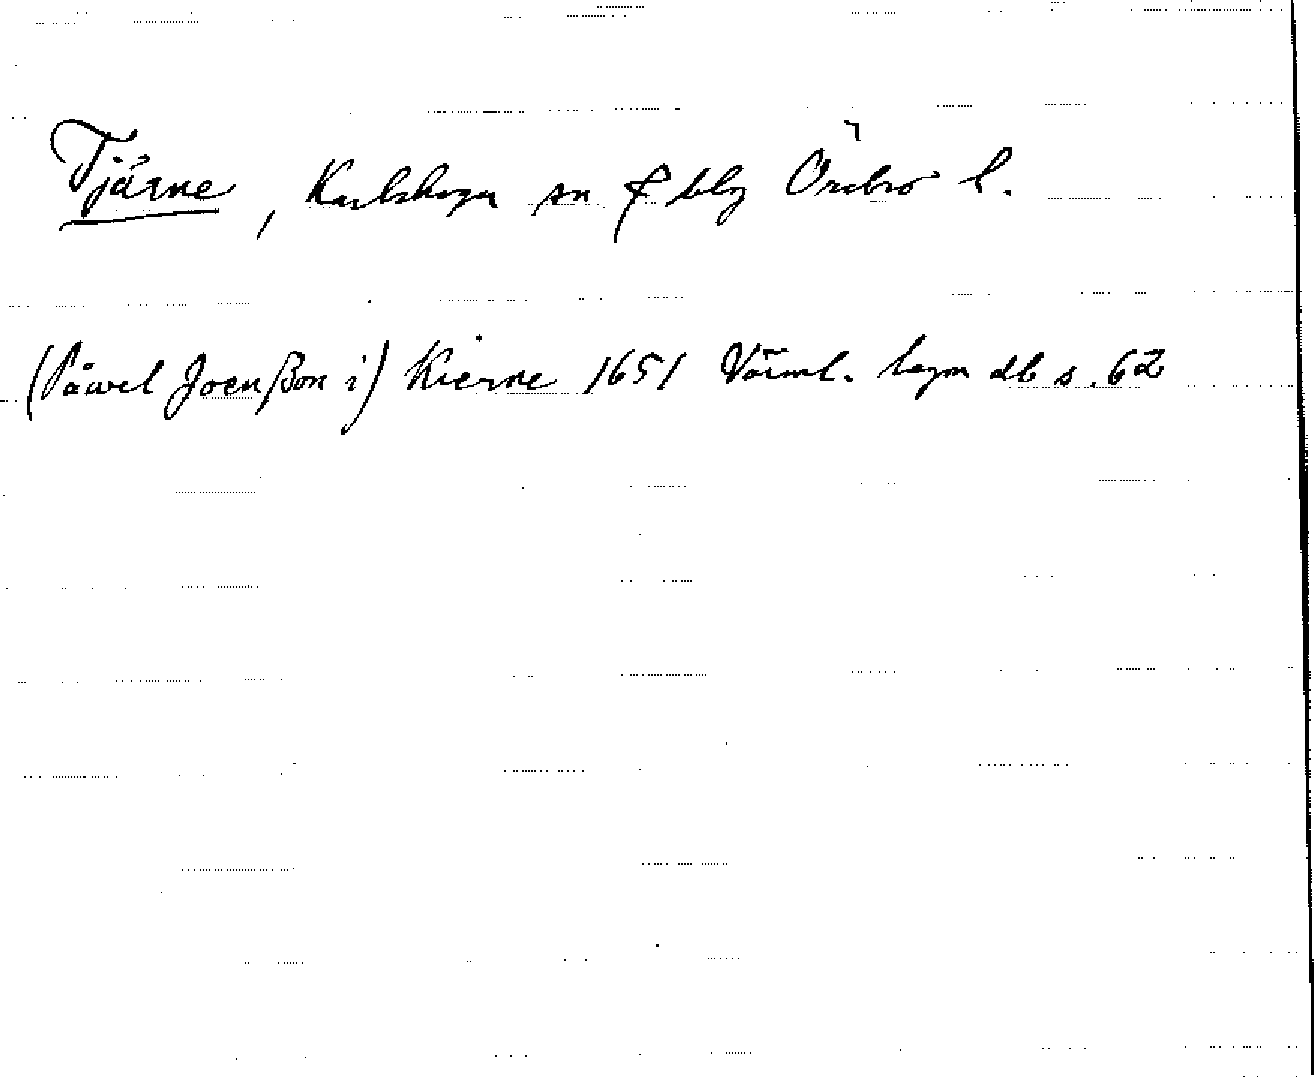 Tjärne, Karlskoga sn & blg Örebro l.
(Påwel Joenßon i) Kierne 1651 Värml. lagm db s. 62